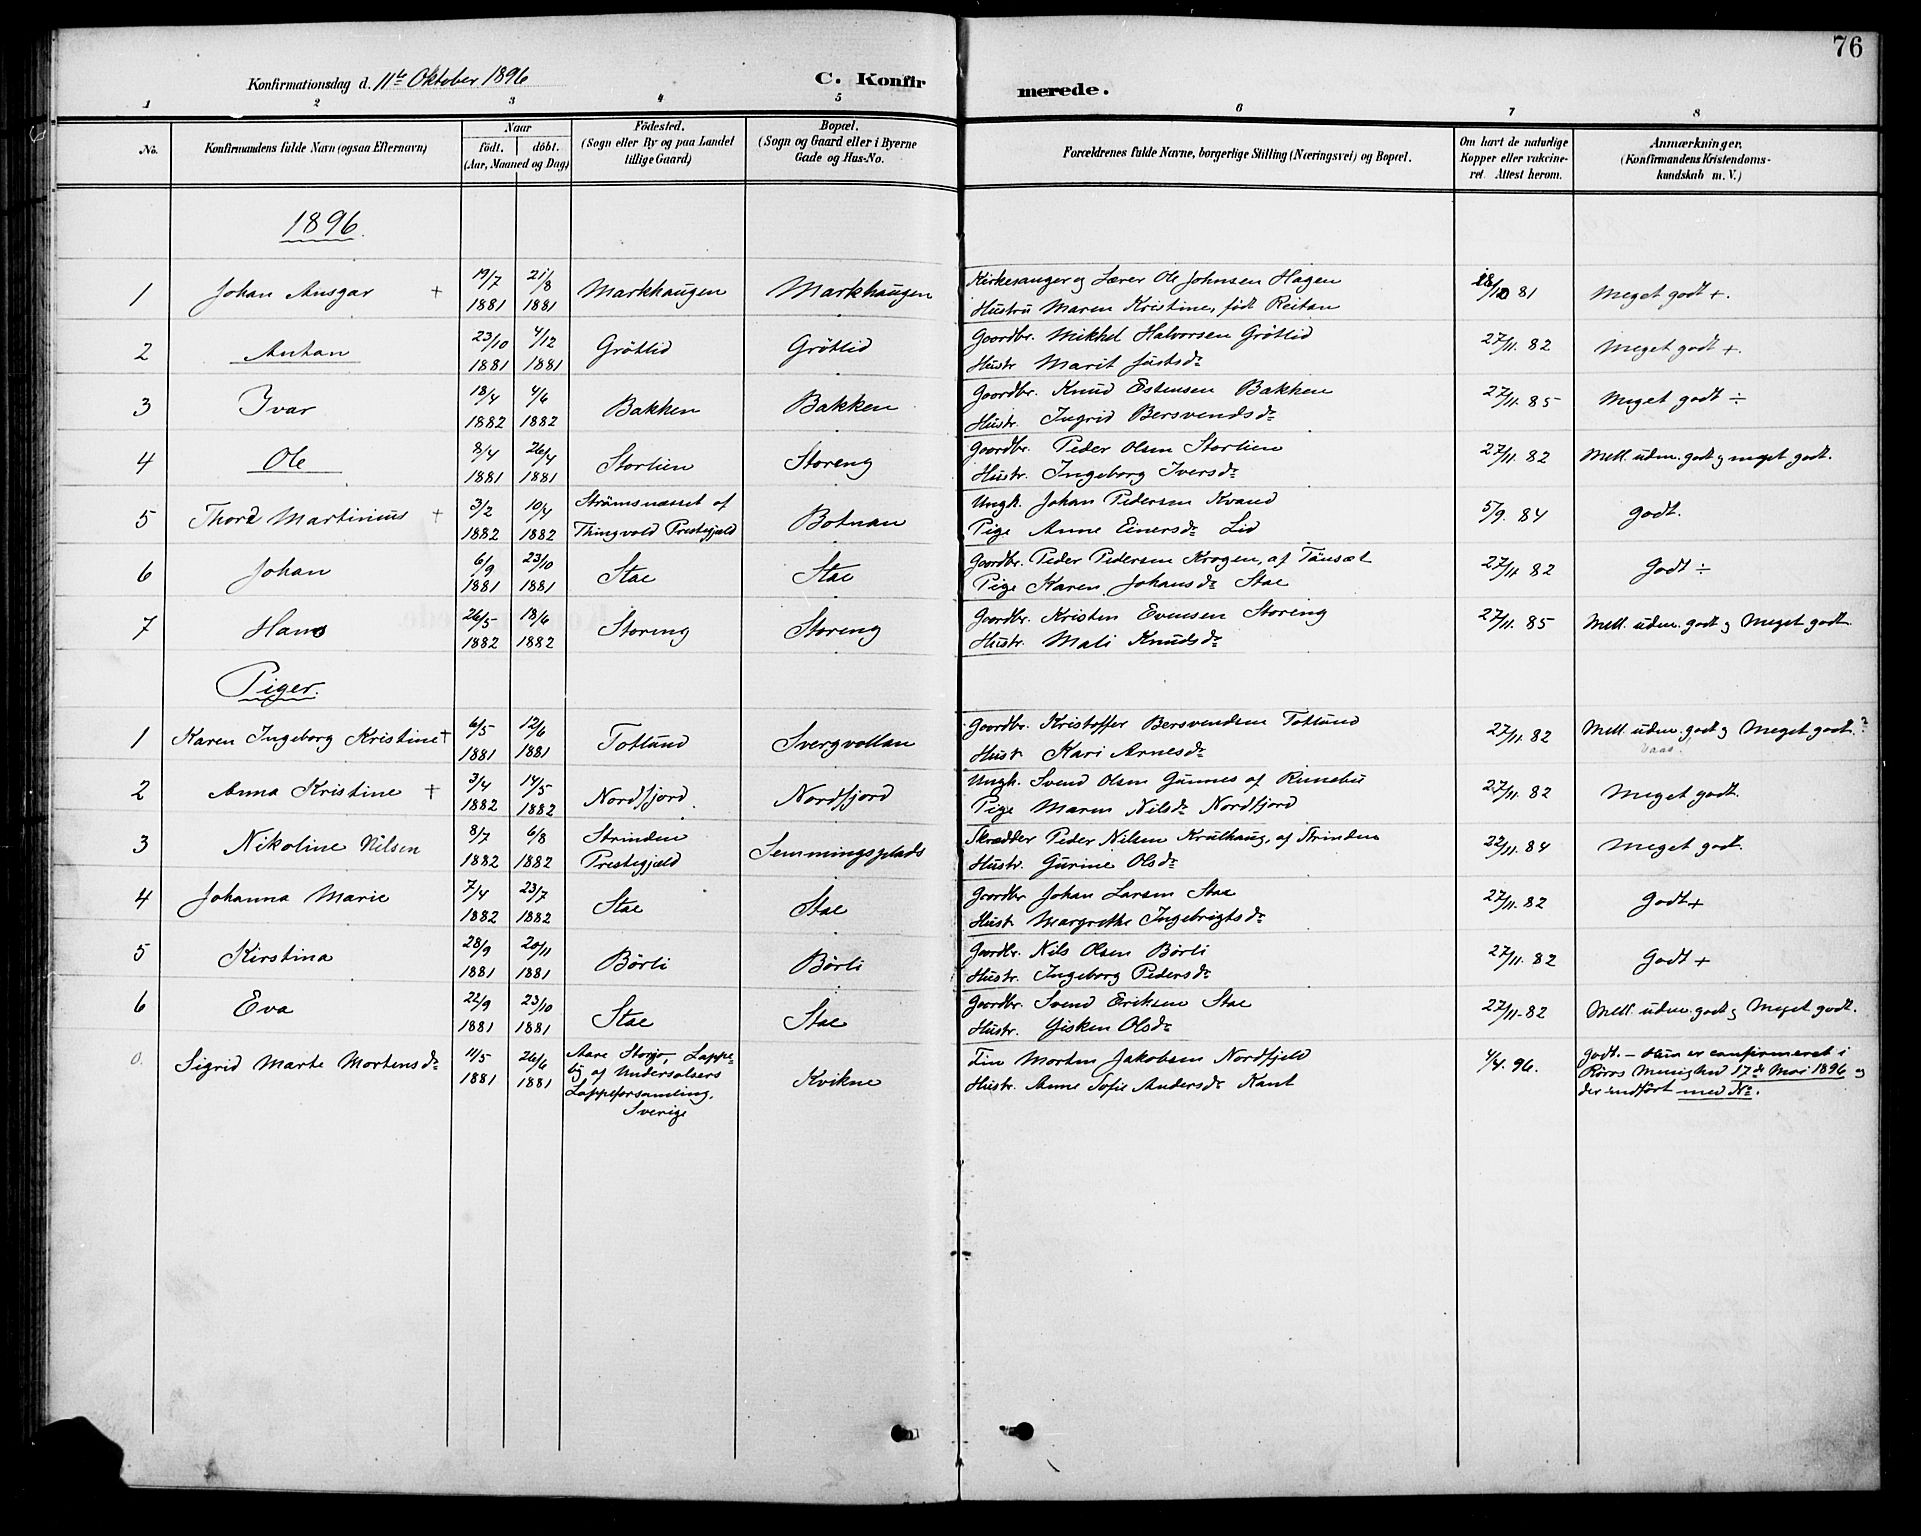 76
Konfirmationsdag d. 11te Oktober 1896 C. Konfirmerede.
1 2 3 4 5 6 7 8
No. Konfirmandens fulde Navn (ogsaa Efternavn) Naar födt. döbt. (Aar, Maaned og Dag) Födested. (Sogn eller By og paa Landet tillige Gaard) Bopæl. (Sogn og Gaard eller i Byerne Gade og Hus-No. Forældrenes fulde Navne, borgerlige Stilling (Næringsvei) og Bopæl. Om havt de naturlige Kopper eller vakcineret. Attest herom. Anmærkninger. (Konfirmandens Kristendomskundskab m. V.)
1896.
1 Johan Ansgar + 19/7 1881 21/8 1881 Markhaugen Markhaugen Kirkesanger og Lærer Ole Johnsen Hagen 18/10 81 Meget godt +.
Hustru Maren Kristine, født Reitan
2 Antan 23/10 1881 4/12 1881 Gröttid Gröttid Gaardbr. Mikkel Halvorsen Gröttid 27/11. 82 Meget godt +.
Hustr Marit Justsdr
3 Ivar 18/4 1882 4/6 1882 Bakken Bakken Gaardbr. Knud Estensen Bakken 27/11. 85 Meget godt ÷
Hustr. Ingrid Bersvendsdr
4 Ole 8/4 1881 26/4 1881 Stortien Storeng Gaardbr. Peder Olsen Stortien 27/11. 82 Mell. udm. godt og meget godt.
Hustr. Ingeborg Iversdr
5 Thord Martinius + 3/2 1882 10/4 1882 Strömsnæsset af Thingvold Prestegjæld Botnan Ungk. Johan Pedersen Kvand 5/9. 84 Godt.
Pige Anne Einersdr Lid
6 Johan 6/9 1881 23/10 1881 Stae Stae Gaardbr. Peder Pedersen Krogen, af Tönsæt 27/11 82 Godt ÷
Pige Karen Johansdr Stae
7 Hans 26/5 1882 18/6 1882 Storeng Storeng Gaardbr. Kristen Evensen Storeng 27/11. 85 Mell. udm. godt og Meget godt.
Hustr. Mali Knudsdr
Piger.
1 Karen Ingeborg Kristine + 6/5 1881 12/6 1881 Totlund Svergvollan Gaardbr. Kristoffer Bersvendsen Totlund 27/11. 82 Mell. udm. godt og Meget godt.?
Hust Kari Arnesdr
2 Anna Kristine + 3/4 1882 14/5 1882 Nordfjord. Nordfjord Ungk. Svend Olsen Gunnes af Rennebu 27/11. 82 Meget godt.
Pige Maren Nilsdr Nordfjord
3 Nikoline Nilsen 8/7 1882 6/8 1882 Strinden Prestegjæld Semmingsplads Skrædder Peder Nilsen Krulhaug, af Strinden 22/11. 84 Meget godt.
Hustr. Gurine Olsdr
4 Johanna Marie 7/4 1882 23/7 1882 Stae Stae Gaardbr Johan Larsen Stae 27/11. 82 Godt +
Hust Margrethe Ingebrigtsdr
5 Kirstina 28/9 1881 20/11 1881 Börli Börli Gaardbr. Nils Olsen Börli 27/11. 82 Godt +
Hustr. Ingeborg Pedersdr
6 Eva 22/9 1881 23/10 1881 Stae Stae Gaardbr Svend Eriksen Stae 27/11-82 Mell. udm. godt og Meget godt.
Hustr. Gisken Olsdr
0. Sigrid Marte Mortensdr 11/5 1881 26/6 1881 Aare Storsjo, Lappe- Kvikne Fin Morten Jakobsen Nordfjeld 4/4. 96. Godt. – Hun er confirmeret i
by af Undersakers Hustr. Anne Sofie Andersdr Kant Röros Menighed 17de Mai 1896 og
Lappeforsamling, der indfört med No.
Sverige